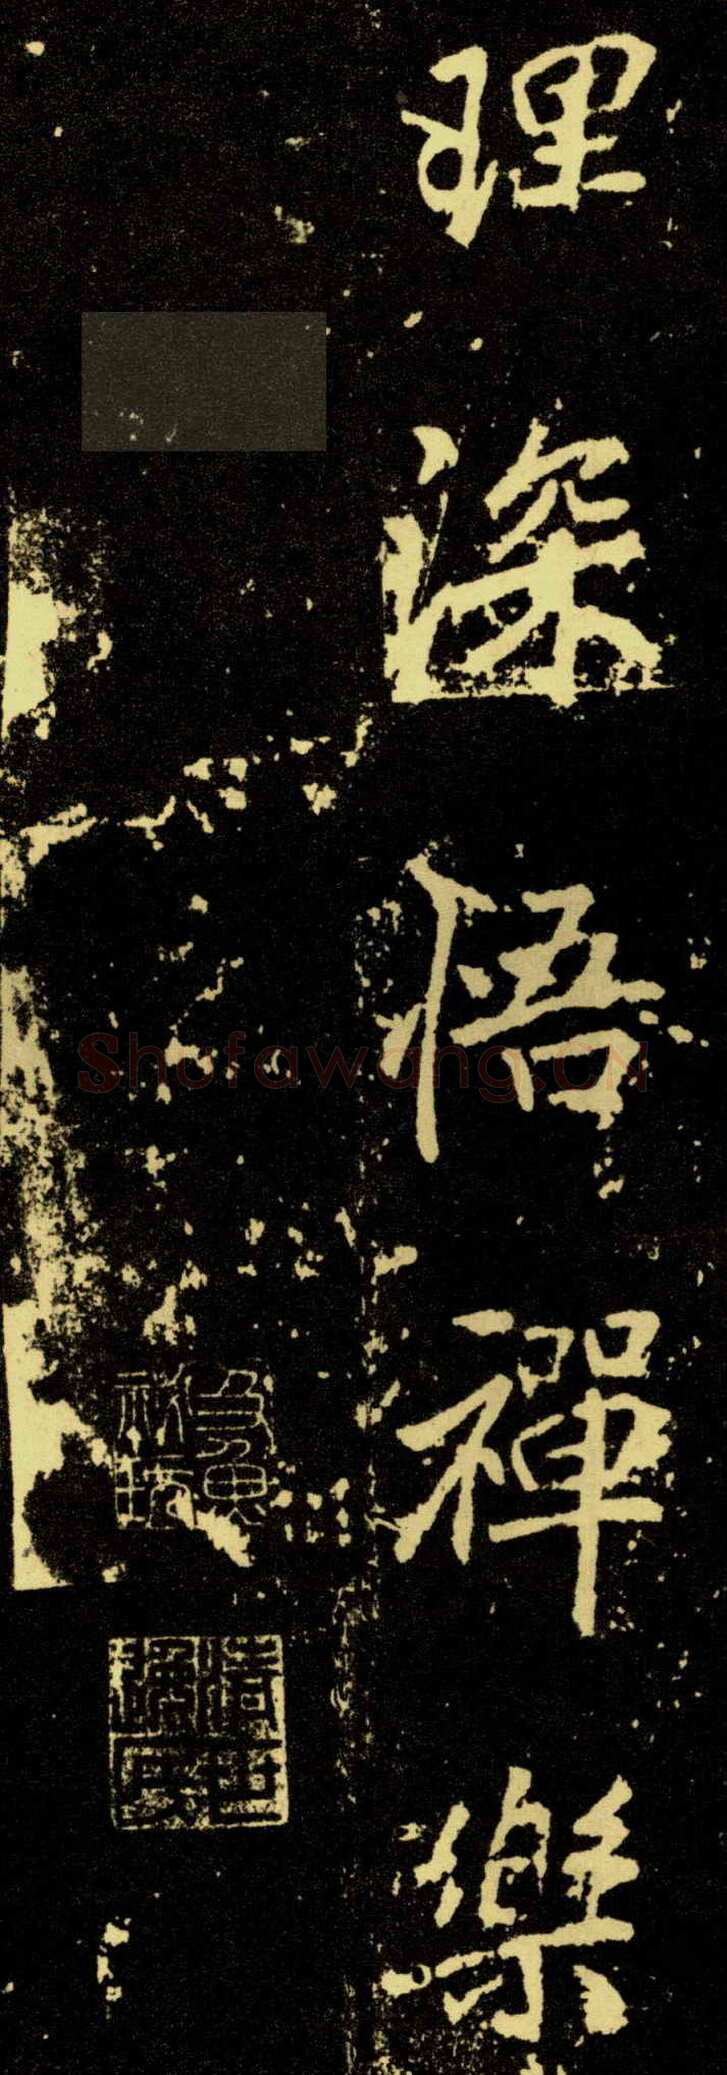 理深悟禪樂
Shufawang.CN